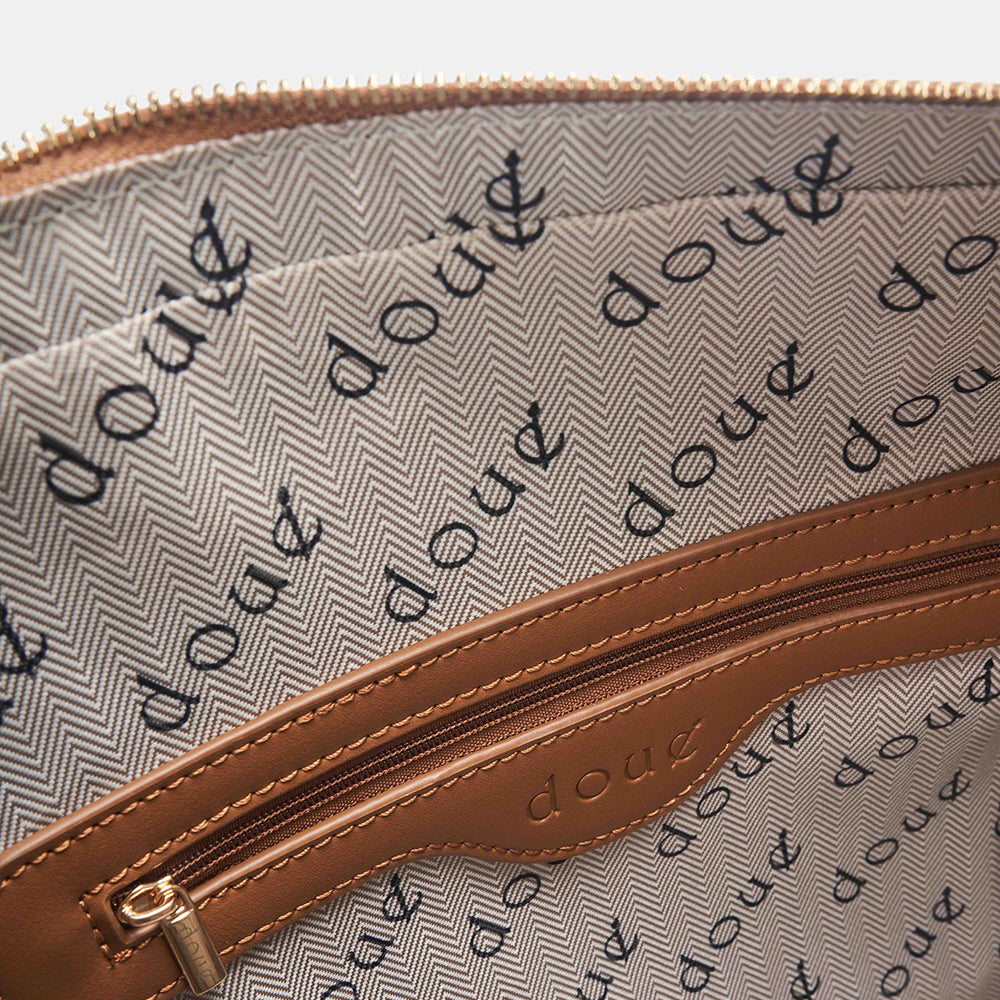 doué
doué
doué
do
doué
doué
doué
dou
doué
doué
dou
doué
doué
doué
do
doué